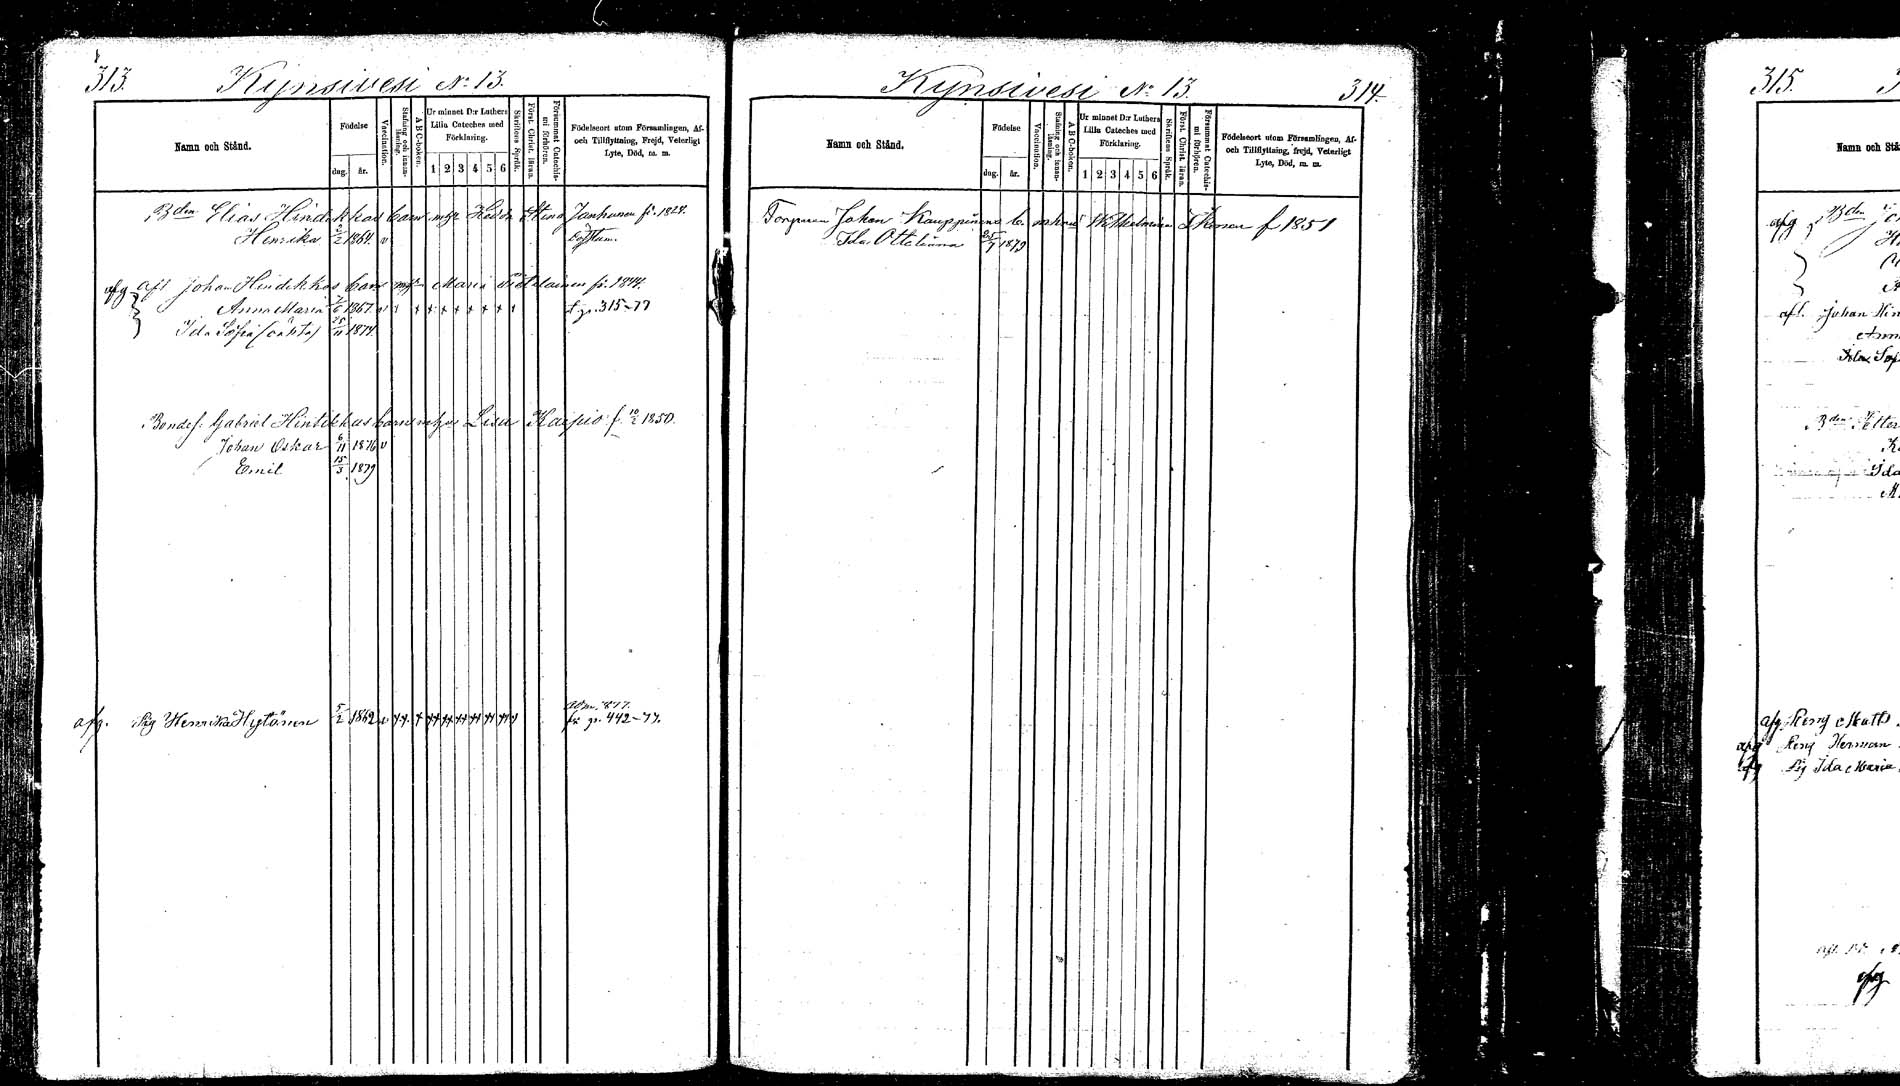 313. Kynsivesi No 13.
Namn och Stånd.
Födelse
dag. år.
Vaccination.
Stafning och innan-läsning.
A B C-boken.
Ur minnet D:r Luthers
Lilla Cateches med
Förklaring.
1 2 3 4 5 6
Skriftens Språk.
Först. Christ. läran.
Försummat Catechis-mi förhören.
Födelseort utom Församlingen, Af-
och Tillflyttning, Frejd, Veterligt
Lyte, Död, m. m.
Bden Elias Hindikkas barn Stina Janhunen f. 1824.
Henrika 2/2 1864. v
afg aft Johan Hindikkas barn Maria f. 1844.
Anna Maria 7/6 1867. v f. p. 315-77
Ida Sofia 25/11 1874
Bondes. Gabriel Hintikkas barn Lisa Karpio f. 10/2 1850.
Johan Oskar 6/11 1876 v
Emil 15/3 1879
afg. Pig Henrika Hytönen 5/2 1862 v
fr p. 442-77.
Kynsivesi No 13. 314.
Namn och Stånd.
Födelse
dag. år.
Vaccination.
Stafning och innan-läsning.
A B C-boken.
Ur minnet D:r Luthers
Lilla Cateches med
Förklaring.
1 2 3 4 5 6
Skriftens Språk.
Först. Christ. läran.
Försummat Catechis-mi förhören.
Födelseort utom Församlingen, Af-
och Tillflyttning, frejd, Veterligt
Lyte, Död, m. m.
Torparen Johan Kauppinens b. m hust Wilhelmina Ikonen f 1851
Ida Ottiliana 25/7 1879
315.
Namn och Stå
afg Bden
aft. Johan Hin
Ida Sof
Bden Petter
Ida
afg. Reng Matts
afg Reng Herman
afg Pig Ida Maria
afg